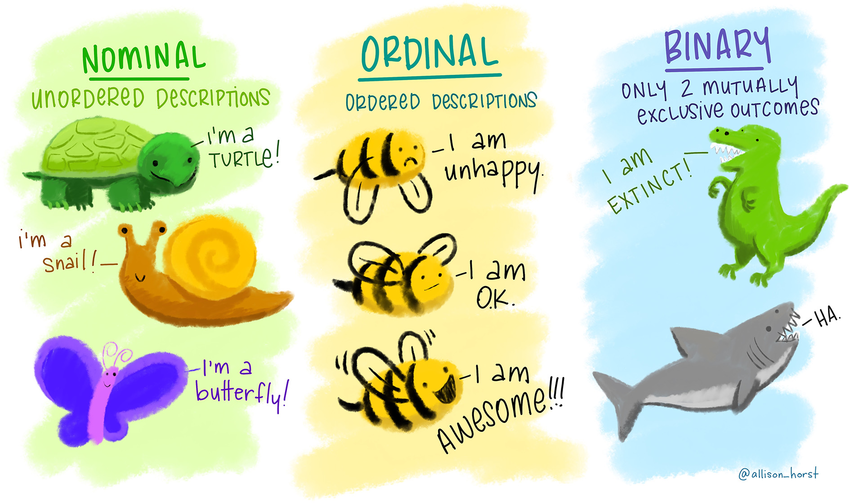 NOMINAL
UNORDERED DESCRIPTIONS
I'm a
TURTLE!
i'm a
snail!
I'm a
butterfly!
ORDINAL
ORDERED DESCRIPTIONS
I am
unhappy.
I am
O.K.
I am
AWESOME!!!
BINARY
ONLY 2 MUTUALLY
EXCLUSIVE OUTCOMES
I am
EXTINCT!
HA.
@allison_horst